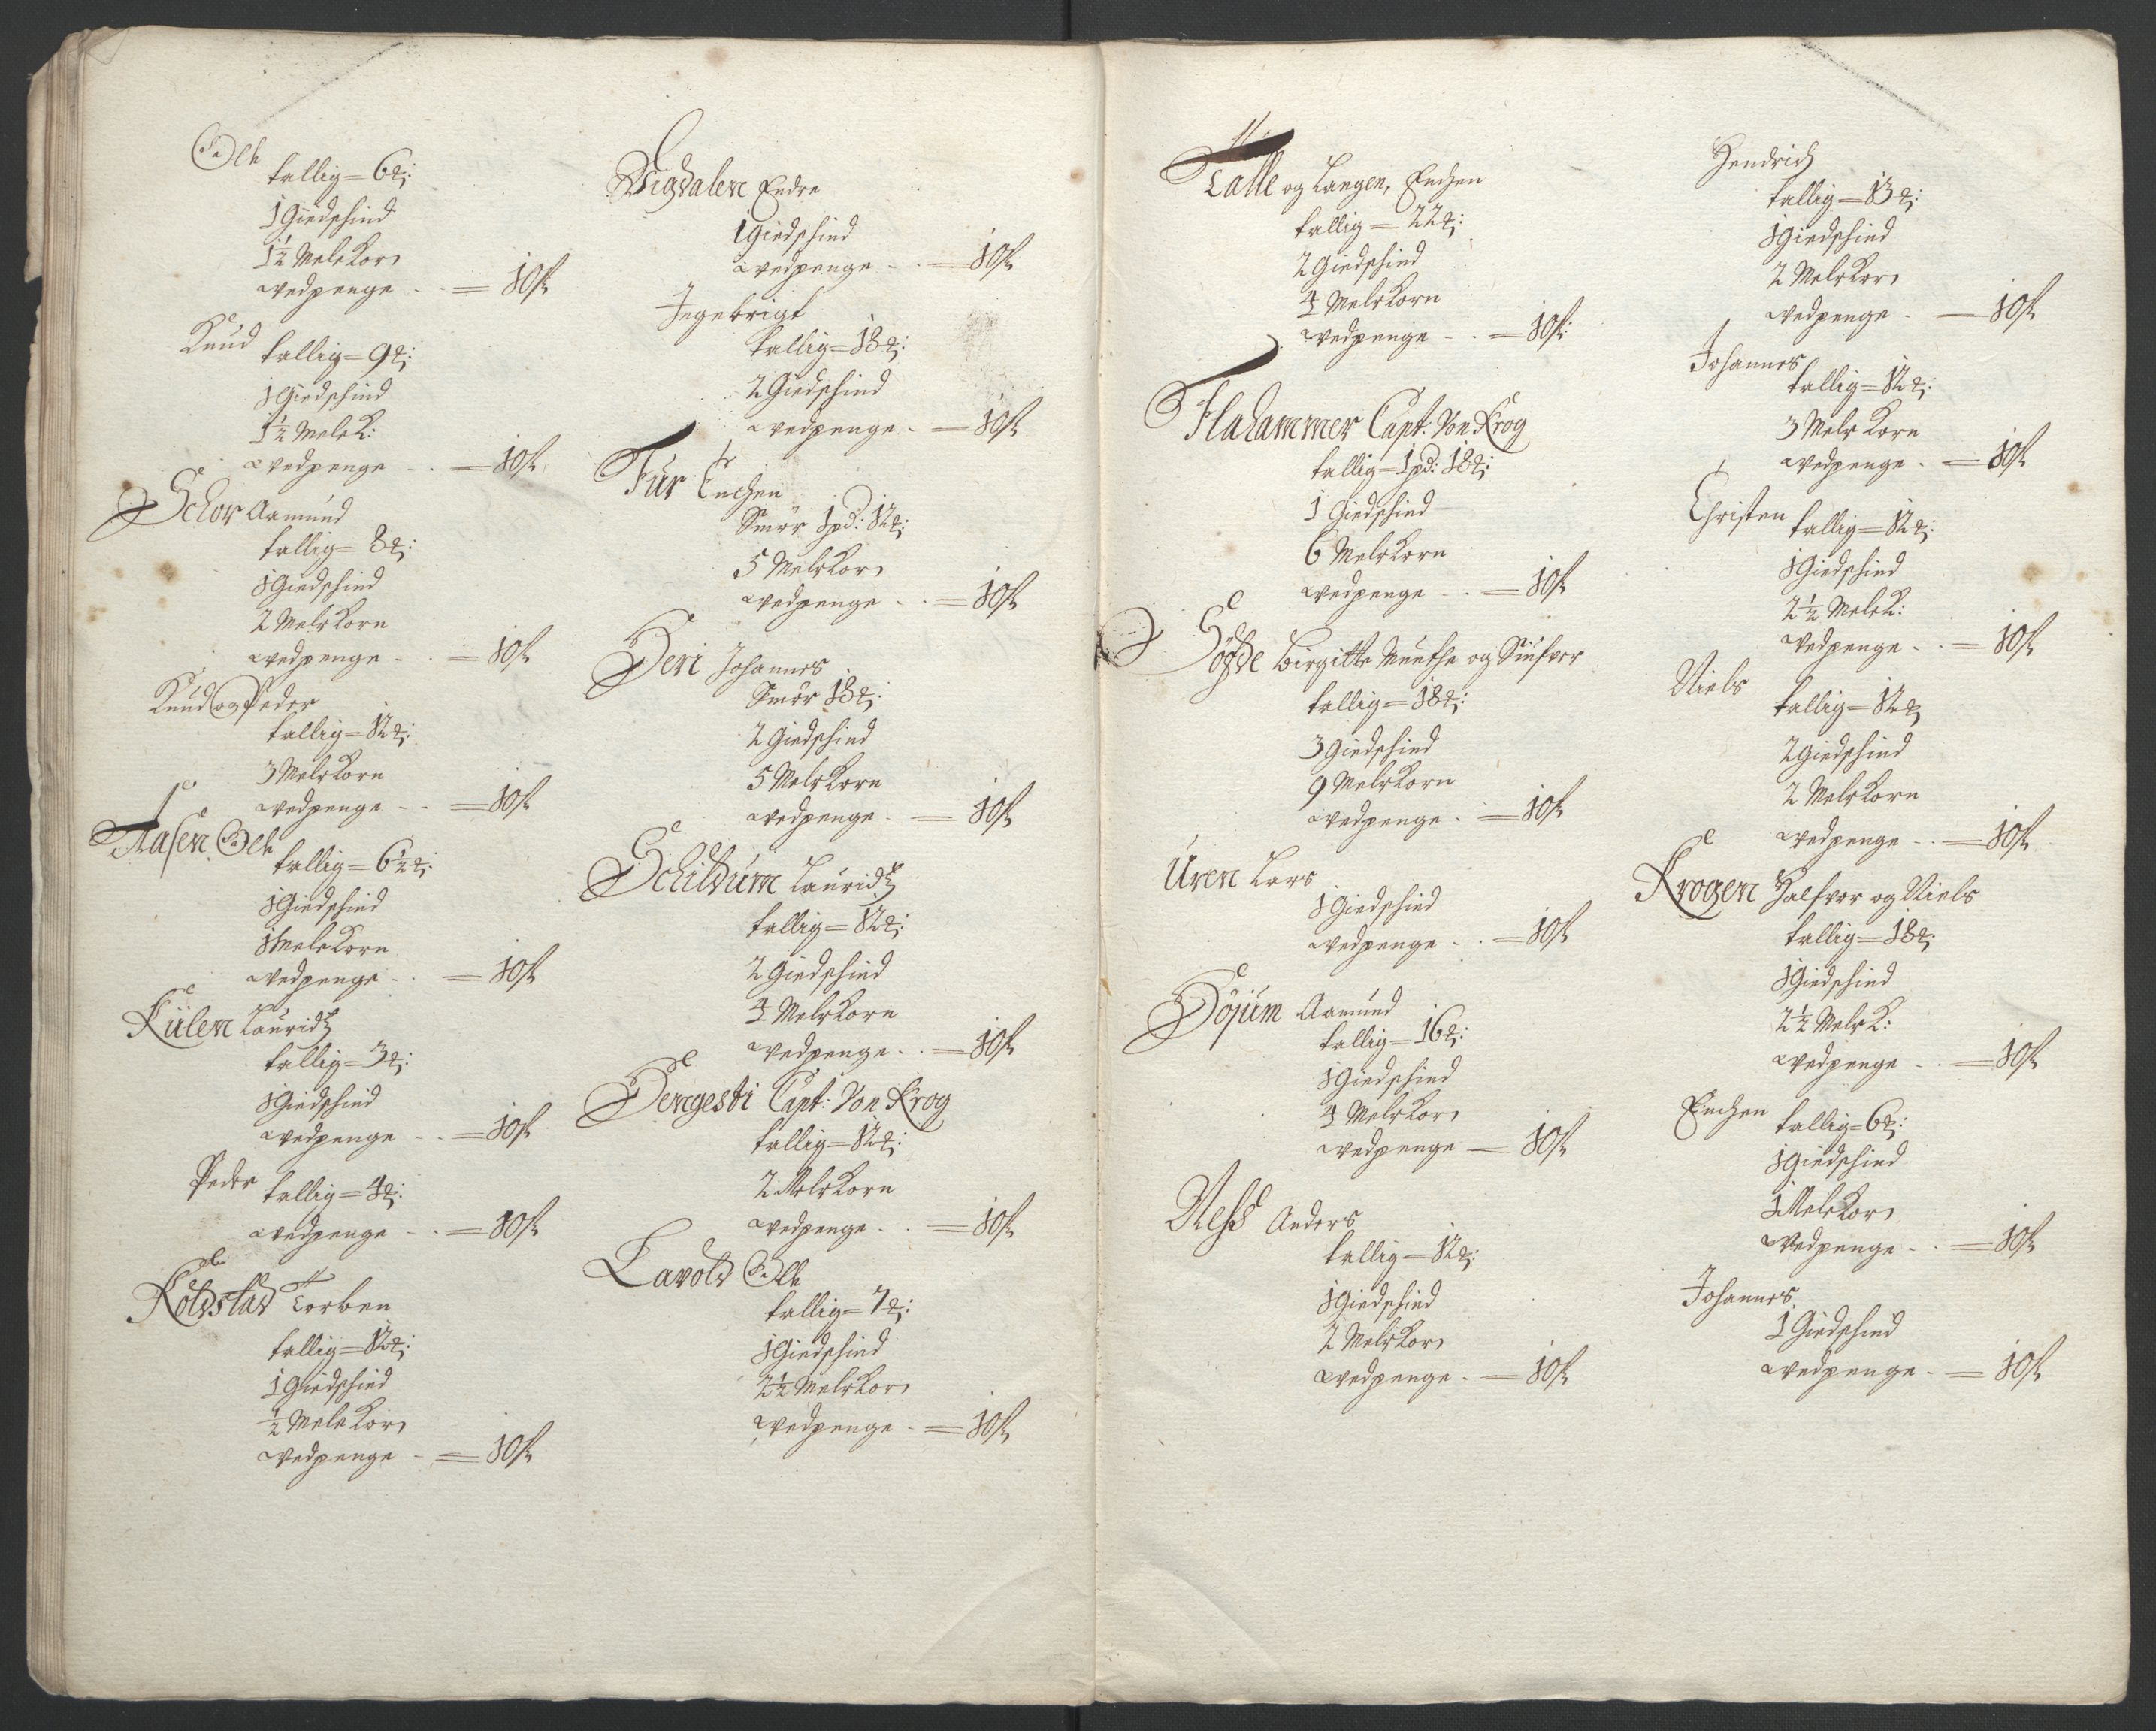 Ole
tallig = 6 ₰:
1 Giedschind
1½ Mele Korn
wedpenge - . = 10 ß
Knud
tallig = 9 ₰:
1 Giedschind
1½ Mele K:
wedpenge - . = 10 ß
Schor Aamund
tallig = 8 ₰:
1 Giedschind
2 Mele Korn
wedpenge - . = 10 ß
Knud og Peder
tallig = 12 ₰:
3 Mele Korn
wedpenge - - = 10 ß
Aasen Ole
tallig = 6½ ₰:
1 Giedschind
1 Mele Korn
wedpenge - . = 10 ß
Külen Lauridtz
tallig = 3 ₰:
1 Giedschind
wedpenge - . = 10 ß
Peder
tallig = 4 ₰:
wedpenge - . = 10 ß
Koldstad Torben
tallig = 12 ₰:
1 Giedschind
½ Mele Korn
wedpenge - . = 10 ß
Vigdalen Endre
1 Giedschind
wedpenge - . = 10 ß
Ingebrigt
tallig = 18 ₰:
2 Giedschind
wedpenge - = 10 ß
Fur Enchen
Smör 1 pd: 12 ₰:
5 Mele Korn
wedpenge - . = 10 ß
Heri Johannes
Smör 18 ₰:
2 Giedschind
5 Mele Korn
wedpenge - = 10 ß
Schildum Lauridtz
tallig = 12 ₰:
2 Giedschind
4 Mele Korn
wedpenge - . = 10 ß
Hengesti Capt: Von Krog
tallig = 12 ₰:
2 Mele Korn
wedpenge - . = 10 ß
Lavold Ole
tallig = 7 ₰:
1 Giedschind
2½ Mele Korn
wedpenge - = 10 ß
Talle og Langen, Enchen
tallig = 22 ₰:
2 Giedschind
4 Mele Korn
wedpenge - . = 10 ß:
Flahammer Capt: Von Krog
tallig = 1 pd: 18 ₰:
1 Giedschind
6 Mele Korn
wedpenge - . = 10 ß
Sogde Birgitte Munthe og Siufver
tallig = 18 ₰:
3 Giedschind
9 Mele Korn
wedpenge - = 10 ß
Uren Lars
1 Giedschind
wedpenge - . = 10 ß
Döjum Aamund
tallig = 16 ₰:
1 Giedschind
4 Mele Korn
wedpenge = 10 ß
Ness Anders
tallig = 12 ₰:
1 Giedschind
2 Mele Korn
wedpenge - = 10 ß
Hendrich
tallig = 13 ₰:
1 Giedschind
2 Mele Korn
wedpenge - = 10 ß
Johannes
tallig = 12 ₰:
3 Mele Korn
wedpenge - = 10 ß
Christen
tallig = 12 ₰:
1 Giedschind
2½ Mele K:
wedpenge - . = 10 ß
Niels
tallig = 12 ₰
2 Giedschind
2 Mele Korn
wedpenge - . = 10 ß
Krogen Halfvor og Niels
tallig = 18 ₰:
1 Giedschind
2½ Mele K:
wedpenge - . = 10 ß
Enchen
tallig = 6 ₰:
1 Giedschind
1 Mele Korn
wedpenge - . = 10 ß
Johannes
1 Giedschind
wedpenge - = 10 ß